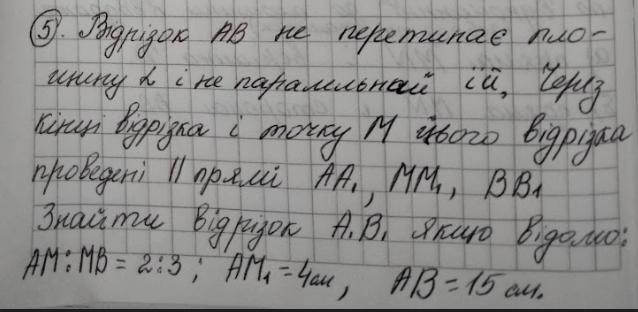 5. Відрізок АВ не перетинає пло-
щину α і не паралельний їй, Через
кінці відрізка і точку М цього відрізка
проведені || прямі АА₁, ММ₁, ВВ₁
Знайти відрізок А₁В₁ якщо відомо:
АМ:МВ = 2:3; АМ₁ = 4см, АВ = 15 см.